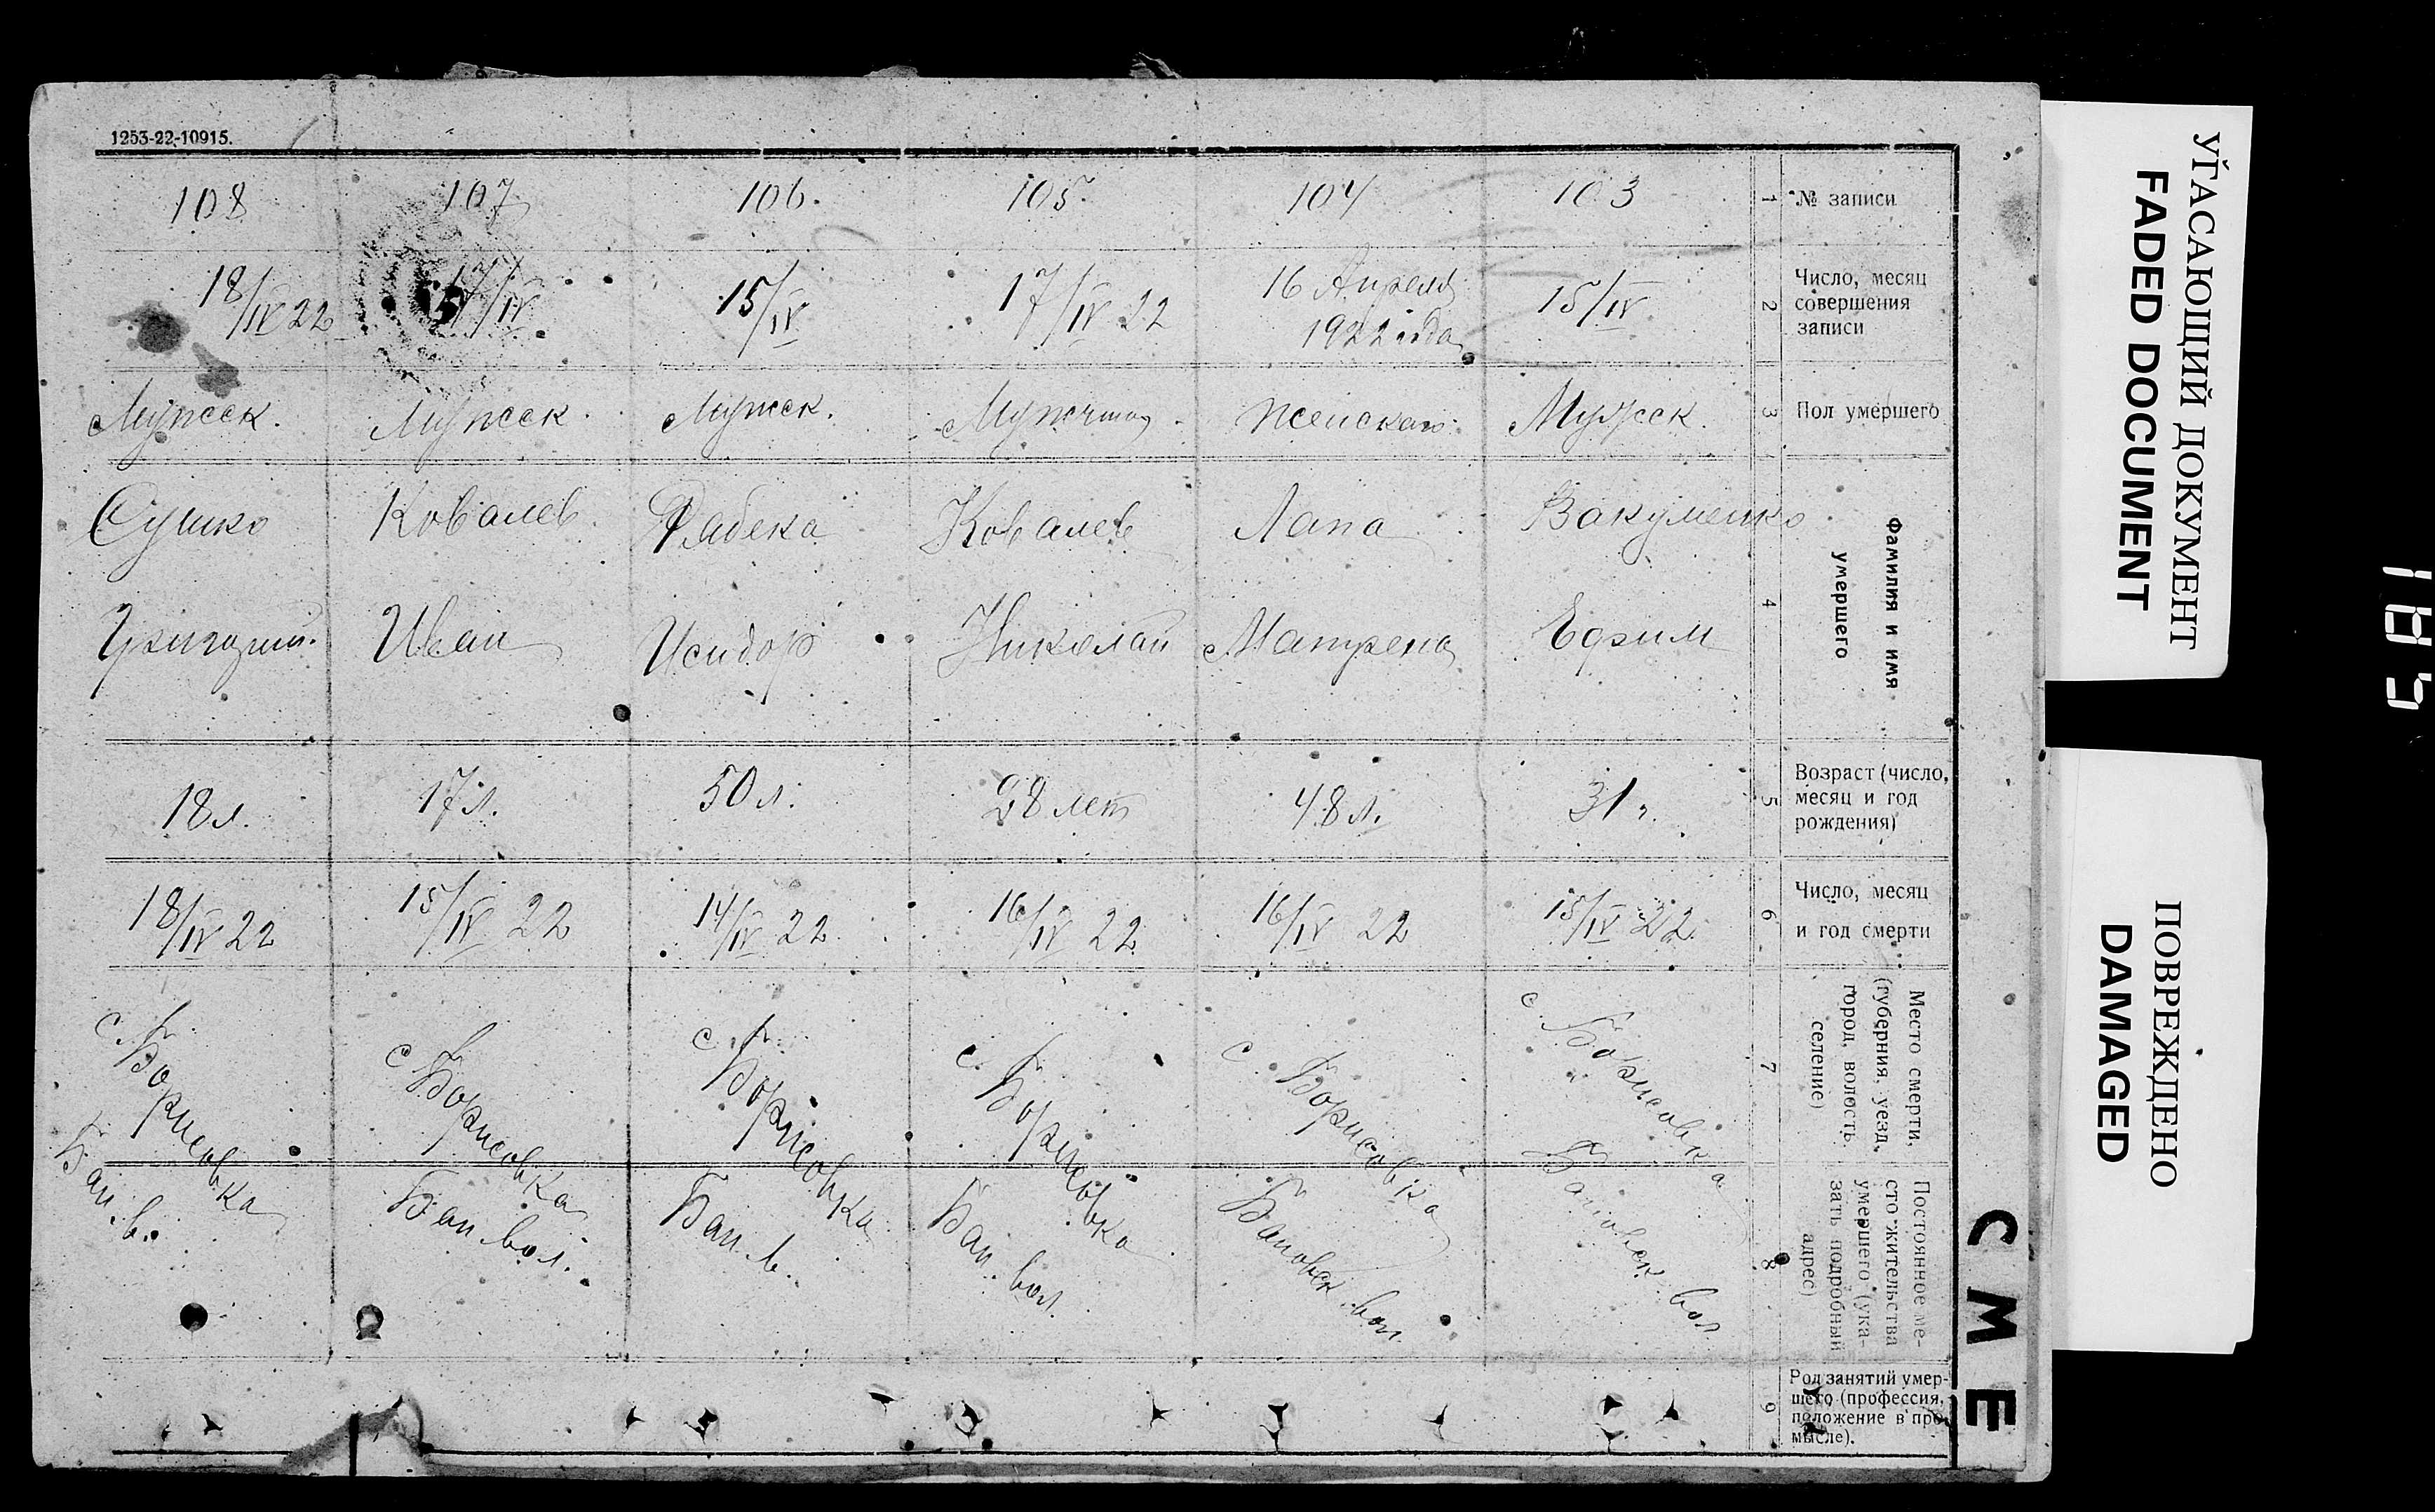 1253-22-10915.
108
107
106.
105.
104
103
1
№ записи
18/IV 22
17/IV.
15/IV
17/IV 22
16 Апреля
1922 года
15/IV
2
Число, месяц
совершения
записи
Мужск.
Мужск.
Мужск.
Женскаго
Мужск.
3
Пол умершего
Сушко
Ковалев
Ковалев
Лапа
Вакуменко
Григорий.
Иван
Исидор
Николай
Матрена
Ефим
4
Фамилия и имя
умершего
18 л.
17 л.
50 л.
28 лет
48 л.
31 г.
5
Возраст (число,
месяц и год
рождения)
18/IV 22
15/IV 22
14/IV 22
16/IV 22
16/IV 22
15/IV 22
6
Число, месяц
и год смерти
с. Борисовка
Бан. в.
с Борисовка
Бан вол.
с. Борисовка
Бан. в.
с. Борисовка
Бан. вол.
с. Борисовка
Бановск. вол.
с. Борисовка
Бановск. вол
7
Место смерти,
(губерния, уезд,
город, волость,
селение)
8
Постоянное ме-
сто жительства
умершего (ука-
зать подробный
адрес)
9
Род занятий умер-
шего (профессия,
положение в про-
мысле).
С М Е
УГАСАЮЩИЙ ДОКУМЕНТ
FADED DOCUMENT
ПОВРЕЖДЕНО
DAMAGED